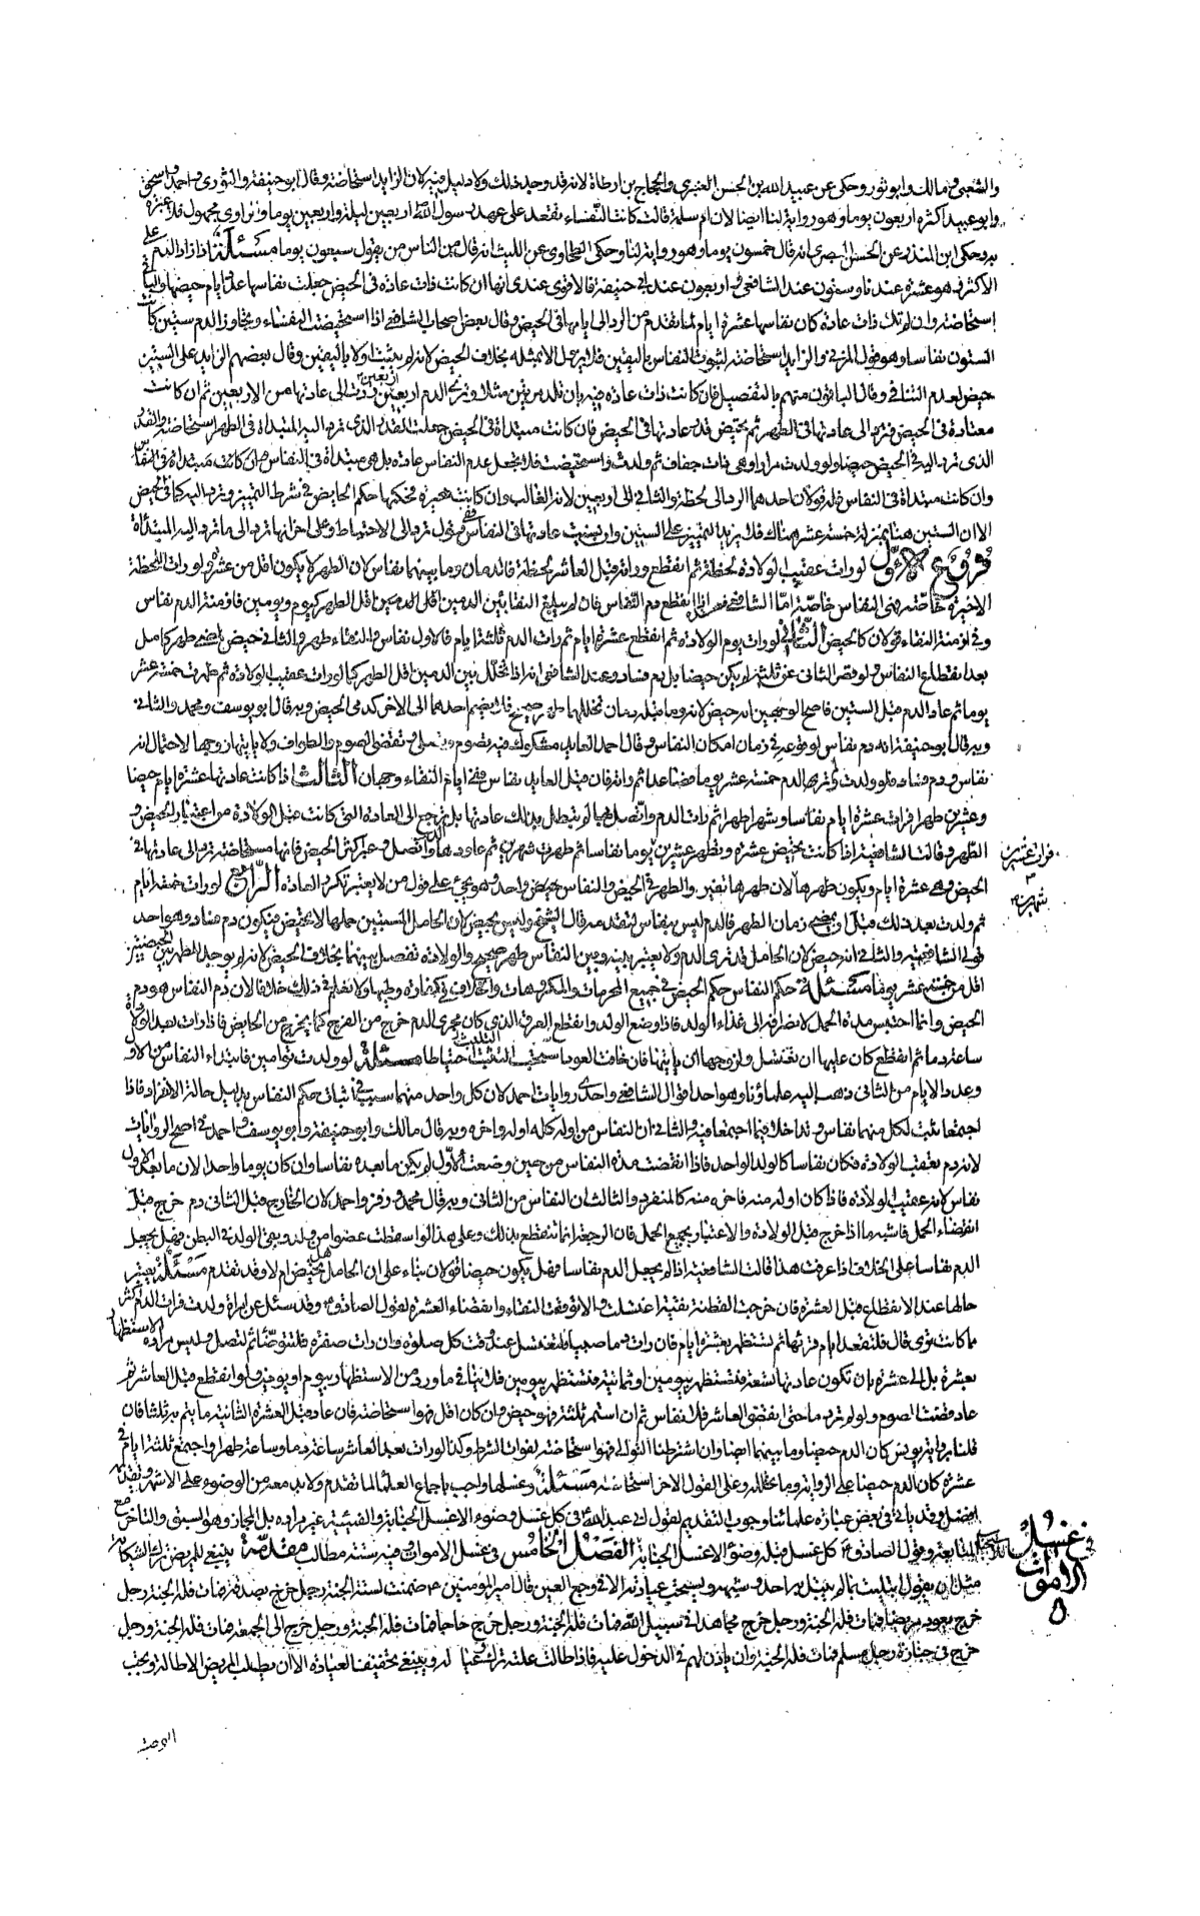 والشعبي ومالك وابو ثور وحكي عن عبيد الله بن الحسن العنبري والحجاج بن ارطاة لانه قد وجد ذلك ولا دليل كان الزايد استحاضة وقال ابو حنيفة والثوري واحمد واسحق
وابو عبيد اكثره اربعون يوما وهو رواية لنا ايضا لان ام سلمة قالت كانت النفساء تقعد على عهد رسول الله اربعين ليلة واربعين يوما والراوي مجهول
وحكى ابن المنذر عن الحسن البصري انه قال خمسون يوما وهو رواية لنا وحكى الطحاوي عن الليث انه قال من الناس من يقول سبعون يوما مسئلة اذا زاد الدم على
الاكثر وهو عشرة عندنا وستون عند الشافعي واربعون عند ابي حنيفة فالاقوى عندي انها ان كانت ذات عادة في الحيض جعلت نفاسها عدد ايام حيضها والباقي
استحاضة وان لم تك ذات عادة كان نفاسها عشرة ايام لما تقدم من الرد الى ايامها في الحيض وقال بعض اصحاب الشافعي اذا استحيضت النفساء وتجاوز الدم ستين كانت
الستون نفاسا وهو قول المزني والزايد استحاضة لثبوت النفاس باليقين فلا يزول الا بمثله بخلاف الحيض لانه لم يثبت اولا باليقين وقال بعضهم الزايد على الستين
حيض لعدم التنافي وقال الباقون منهم بالتفصيل فان كانت ذات عادة فيه بان تلد مرتين مثلا وترى الدم اربعين ردت الى عادتها من الاربعين ثم ان كانت
معتادة في الحيض فترد الى عادتها في الطهر ثم تحيض قدر عادتها في الحيض فان كانت مبتداة في الحيض جعلت القدر الذي ترد اليه المبتداة في الطهر استحاضة والقدر
الذي ترد اليه في الحيض حيضا ولو ولدت مرارا وهي ذات جفاف ثم ولدت واستحيضت فلا يجعل عدم النفاس عادة بل هي مبتداة في النفاس
وان كانت مبتداة في النفاس قولان احدهما الرد الى لحظة والثاني الى اربعين لانه الغالب وان كانت مميزة فحكمها حكم الحايض في شرط التمييز وترد اليه كما في الحيض
الا ان الستين هنا بمنزلة خمسة عشر هناك فلا يزيد المميز على الستين وان نسيت عادتها في النفاس ففي قول ترد الى الاحتياط وعلى اخر انها ترد الى ما ترد اليه المبتداة
فروع الاول لو رات عقيب الولادة لحظة ثم انقطع وراته قبل العاشر لحظة فالدمان وما بينهما نفاس لان الطهر لا يكون اقل من عشرة ولو رات اللحظة
الاخيرة خاصة فهي النفاس خاصة اما الشافعي اذا انقطع دم النفاس فان لم يبلغ النقا بين الدمين اقل الطهر كيوم ويومين فازمنة الدم نفاس
وفي ازمنة النقاء قولان كالحيض الثاني لو رات يوم الولادة ثم انقطع عشرة ايام ثم رات الدم ثلثة ايام فالاول نفاس والنقاء طهر والثاني حيض طهر كامل
بعد انقطاع النفاس ولو قصر الثاني عن ثلثة لم يكن حيضا بل دم فساد وعند الشافعي انه اذا تخلل بين الدمين اقل الطهر كما لو رات عقيب الولادة ثم طهرت خمسة عشر
يوما ثم عاد الدم قبل الستين فاصح الوجهين انه حيض لانه وما قبله دمان تخللهما طهر صحيح فلا يضم احدهما الى الاخر كدمي الحيض وبه قال ابو يوسف ومحمد والثاني
وبه قال ابو حنيفة انه دم نفاس لوقوعه في زمان امكان النفاس وقال احمد العايد مشكوك فيه تصوم وتصلي وتقضي الصوم والطواف ولا ياتيها زوجها لاحتمال انه
نفاس ودم فساد فلو ولدت ولم تر الدم خمسة عشر يوما فصاعدا ثم راته فان جعل العايد نفاس ففي ايام النقاء وجهان الثالث اذا كانت عادتها عشرة ايام حيضا
وعشرين طهرا فرات عشرة ايام نفاسا وشهرا طهرا ثم رات الدم واتصل بها لم يبطل بذلك عادتها بل ترجع الى العادة التي كانت قبل الولادة من اعتبار الحيض و
الطهر وقالت الشافعية اذا كانت تحيض عشرة وتطهر عشرين يوما نفاسا ثم طهرت شهرين ثم عاودها الدم واتصل وعبر اكثر الحيض فانها مستحاضة ترد الى عادتها في
الحيض وهي عشرة ايام ويكون طهرها لان طهرها تغير والطهر في الحيض والنفاس حيض واحد وهو يجيء على قول من لا يعتبر تكرر العادة الرابع لو رات خمسة ايام
ثم ولدت بعد ذلك قبل ان يمضي زمان الطهر فالدم ليس بنفاس لتقدمه قال الشيخ وليس بحيض لان الحامل المستبين حملها لا تحيض فيكون دم فساد وهو احد
قولي الشافعية والثاني انه حيض لان الحامل قد ترى الدم ولا يعتبر بينه وبين النفاس طهر صحيح والولادة تفصل بينهما بخلاف الحيض لانه لم يوجد طهر بين الحيضتين
اقل من خمسة عشر يوما مسئلة حكم النفاس حكم الحيض في جميع المحرمات والمكروهات والخلاف في كفارة وطيها ولا نعلم في ذلك خلافا لان دم النفاس هو دم
الحيض وانما احتبس مدة الحمل لانصرافه الى غذاء الولد فاذا وضع الولد وانقطع العرق الذي كان مجرى الدم خرج من الفرج كما يخرج من الحايض فاذا رات بعد الولادة
ساعة دما ثم انقطع كان عليها ان تغتسل ولزوجها ان ياتيها فان خافت العود استحب التثبت احتياطا مسئلة لو ولدت توامين فابتداء النفاس من الاول
وعدد الايام من الثاني ذهب اليه علماؤنا وهو احد اقوال الشافعي واحدى روايات احمد لان كل واحد منهما سبب في اثبات حكم النفاس بدليل حالة الانفراد فاذا
اجتمعا ثبت لكل منهما نفاس وتداخلا فيما اجتمعا فيه والثاني ان النفاس من اوله كله اوله واخره وبه قال مالك وابو حنيفة وابو يوسف واحمد في اصح الروايات
لانه دم تعقب الولادة فكان نفاسا كالولد الواحد فاذا انقضت مدة النفاس من حين وضعت الاول لم يكن ما بعده نفاسا وان كان يوما واحدا لان ما بعد الاول
نفاس لانه عقيب الولادة فاذا كان اوله منه فاخره منه كالمنفرد والثالث ان النفاس من الثاني وبه قال محمد وزفر واحمد لان الخارج قبل الثاني دم خرج قبل
انقضاء الحمل فاشبه ما اذا خرج قبل الولادة والاعتبار بجميع الحمل فان الرجعة انما تنقطع بذلك وعلى هذا لو اسقطت عضوا من ولد وبقي الولد في البطن فهل يجعل
الدم نفاسا على الخلاف اذا عرفت هذا قالت الشافعية اذا لم يجعل الدم نفاسا فهل يكون حيضا قولان بناء على ان الحامل هل تحيض ام لا وقد تقدم مسئلة يعتبر
حالها عند الانقطاع قبل العشرة فان خرجت القطنة نقية اغتسلت والا توقعت النقاء وانقضاء العشرة لقول الصادق وقد سئل عن امراة ولدت فرات الدم اكثر
ما كانت ترى قال فلتقعد ايام قرئها ثم تستظهر بعشرة ايام فان رات دما صبيبا فلتغتسل عند وقت كل صلوة وان رات صفرة فلتتوضا ثم لتصل وليس مراده الاستظهار
بعشرة بل الى عشرة بان تكون عادتها تسعة فتستظهر بيومين او ثمانية فتستظهر بيومين فلا ينافي ما ورد من الاستظهار بيوم او يومين ولو انقطع قبل العاشر ثم
عاد قضت الصوم ولو لم تره دما حتى انقضى العاشر فلا نفاس ثم ان استمر ثلثة فهو حيض وان كان اقل فهو استحاضة فان عاد قبل العشرة الثانية ما يتم به ثلثا فان
قلنا برواية يونس كان الدم حيضا وما بينهما ايضا وان اشترطنا التوالي فهو استحاضة لفوات الشرط وكذا لو رات بعد العاشر ساعة دما وساعة طهرا واجتمع ثلثة ايام في
عشرة كان الدم حيضا على الرواية وما تخلله وعلى القول الاخر استحاضة مسئلة وغسلها واجب باجماع العلماء لما تقدم ولا بد معه من الوضوء على الاشهر وتقديمه
افضل وقد ياتي في بعض عبارة علمائنا وجوب التقديم لقول ابي عبد الله في كل غسل وضوء الا غسل الجنابة والقبلية غير مرادة بل المجاز وهو السبق والتاخر مع
المتابعة وقول الصادق كل غسل قبله وضوء الا غسل الجنابة الفصل الخامس في غسل الاموات وفيه ستة مطالب مقدمة ينبغي للمريض ترك الشكاية
مثل ان يقول ابتليت بما لم يبتل به احد وشبهه ويستحب عيادته الا في وجع العين قال امير المؤمنين ضمنت لستة الجنة رجل خرج بصدقة فمات فله الجنة ورجل
خرج يعود مريضا فمات فله الجنة ورجل خرج مجاهدا في سبيل الله فمات فله الجنة ورجل خرج حاجا فمات فله الجنة ورجل خرج الى الجمعة فمات فله الجنة ورجل
خرج في جنازة رجل مسلم فمات فله الجنة وان ياذن لهم في الدخول عليه فاذا طالت علته ترك وعياله وينبغي تخفيف العيادة الا ان يطلب المريض الاطالة ويجب
في غسل
الاموات